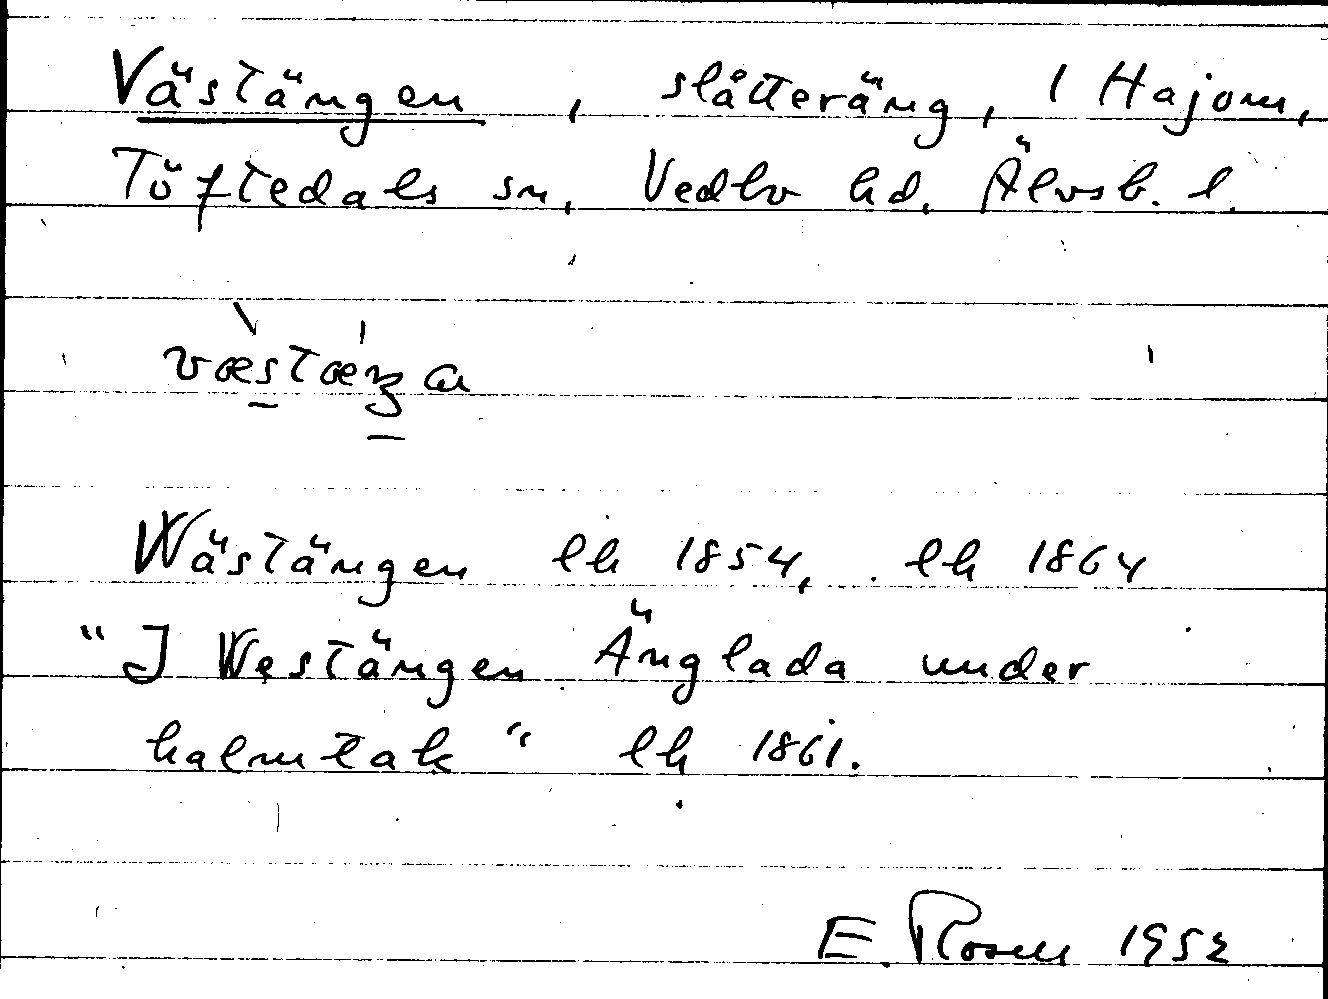 Västängen, slåtteräng, 1 Hajom,
Töftedals sn, Vedbo hd. Älvsb. l.
væstæŋa
Wästängen lh 1854, lh 1864
"I Westängen Änglada under
halmtak" lh 1861.
E. Rosell 1952